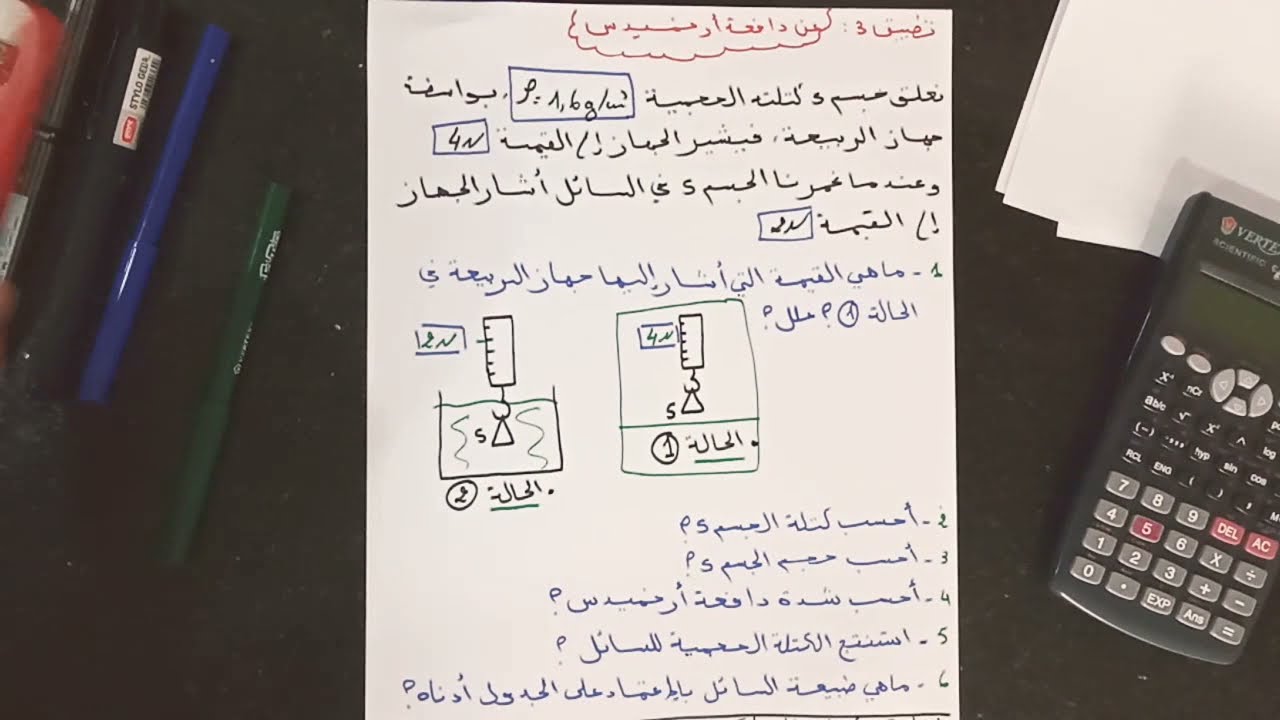 تطبيق 3: عن دافعة أرخميدس
نعلق جسم S كتلته الحجمية ρ = 1,6g/cm³، بواسطة
جهاز الربيعة، فيشير الجهاز إلى القيمة 4N
وعندما غمرنا الجسم S في السائل أشار الجهاز
إلى القيمة 2N
1- ماهي القيمة التي أشار إليها جهاز الربيعة في
الحالة 1؟ علل؟
4N
S
الحالة 1
2N
S
الحالة 2
2- أحسب كتلة الجسم S؟
3- أحسب حجم الجسم S؟
4- أحسب شدة دافعة أرخميدس؟
5- استنتج الكتلة الحجمية للسائل؟
6- ماهي طبيعة السائل بالإعتماد على الجدول أدناه؟
STYLO GEL
VERTEX
VERTEX
SCIENTIFIC
x² nCr
ab/c √ x² ^ log
(-) °,,, hyp sin cos
RCL ENG ( ) ,
7 8 9 DEL AC
4 5 6 X ÷
1 2 3 + -
0 . EXP Ans =